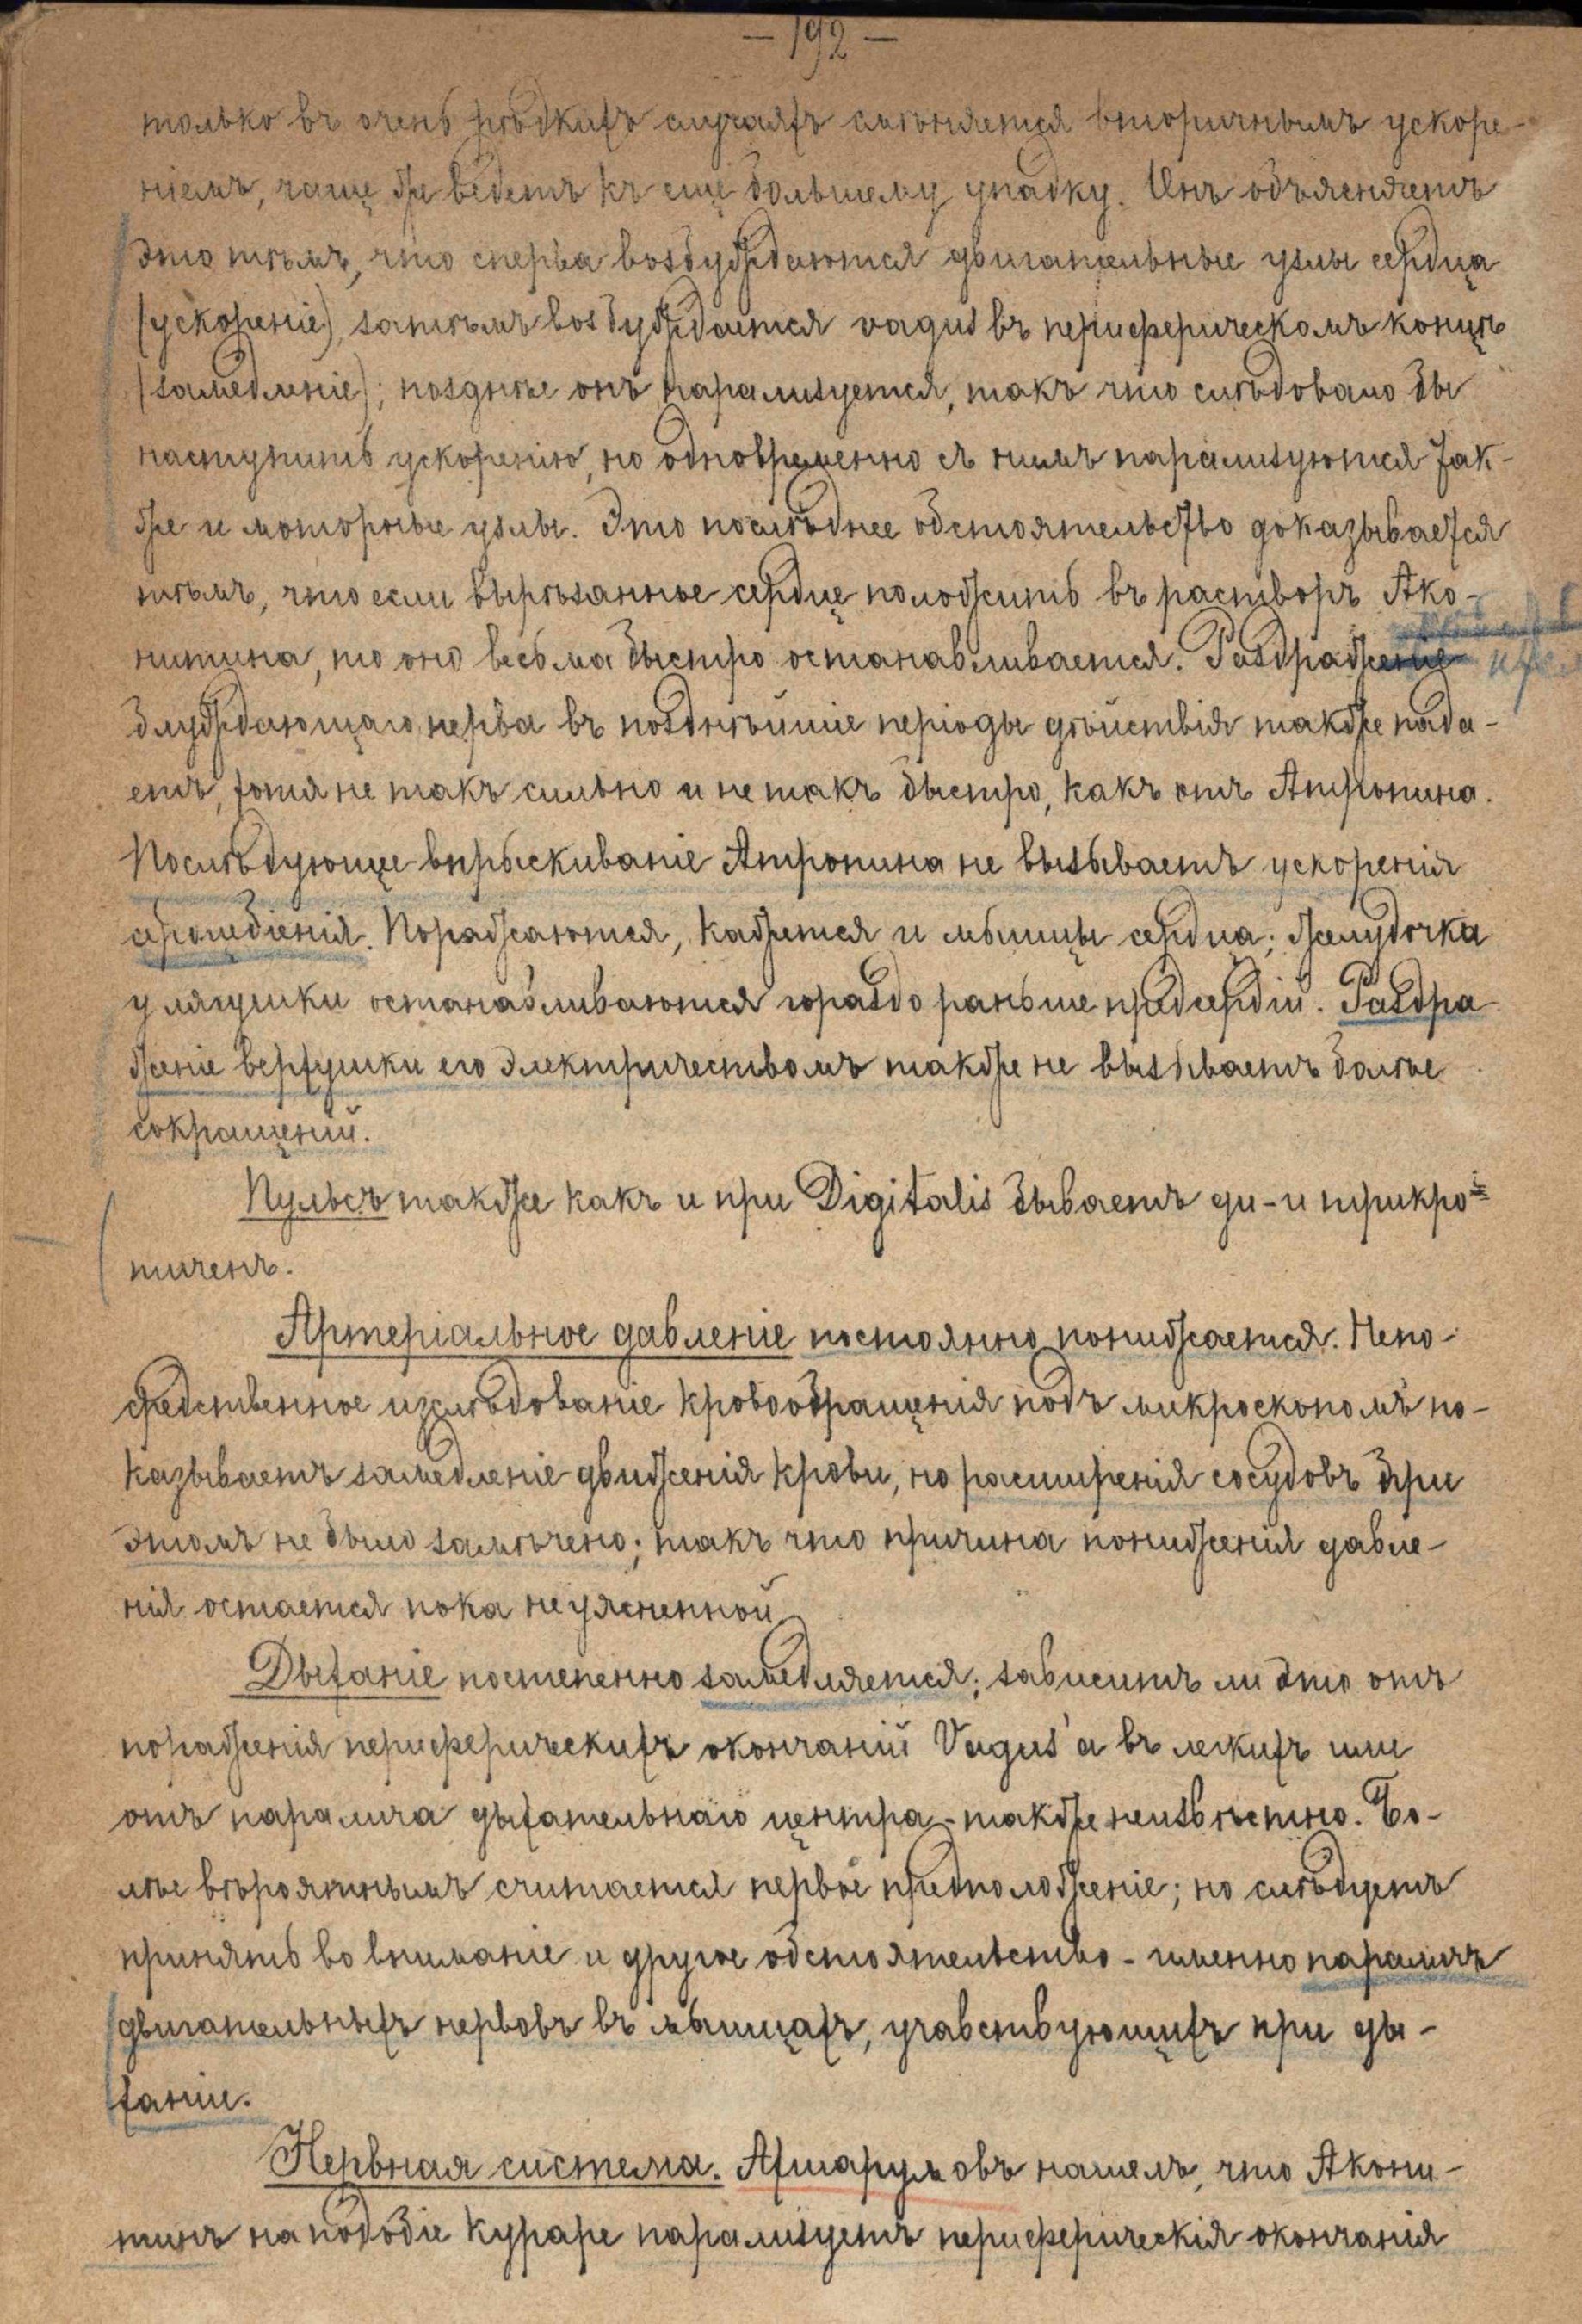 — 192 —
только въ очень рѣдкихъ случаяхъ смѣняется вторичнымъ ускоре-
ніемъ, чаще же ведетъ къ еще большему упадку. Онъ объясняетъ
это тѣмъ, что сперва возбуждаются двигательные узлы сердца
(ускореніе), затѣмъ возбуждается vagus въ периферическомъ концѣ
(замедленіе); позднѣе онъ парализуется, такъ что слѣдовало бы
наступить ускоренію, но одновременно съ нимъ парализуются так-
же и моторные узлы. Это послѣднее обстоятельство доказывается
тѣмъ, что если вырѣзанное сердце положить въ растворъ Ако-
нитина, то оно весьма быстро останавливается. Раздраженіе
блуждающаго нерва въ позднѣйшіе періоды дѣйствія также пада-
етъ, хотя не такъ сильно и не такъ быстро, какъ отъ Атропина.
Послѣдующее впрыскиваніе Атропина не вызываетъ ускоренія
сердцебіенія. Поражаются, кажется и мышцы сердца; желудочка
у лягушки останавливаются гораздо раньше предсердій. Раздра
женіе верхушки его электричествомъ также не вызываетъ болѣе
сокращеній.
Пульсъ также какъ и при Digitalis бываетъ ди-и трикро=
тиченъ.
Артеріальное давленіе постоянно понижается. Непо-
средственное изслѣдованіе кровообращенія подъ микроскопомъ по-
казываетъ замедленіе движенія крови, но расширенія сосудовъ при
этомъ не было замѣчено; такъ что причина пониженія давле-
нія остается пока неуясненной.
Дыханіе постепенно замедляется; зависитъ ли это отъ
пораженія периферическихъ окончаній Vagus'а въ легкихъ или
отъ паралича дыхательнаго центра - также неизвѣстно. Бо-
лѣе вѣроятнымъ считается первое предположеніе; но слѣдуетъ
принять во вниманіе и другое обстоятельство - именно параличъ
двигательныхъ нервовъ въ мышцахъ, учавствующихъ при ды-
ханіи.
Нервная система. Ахшарумовъ нашелъ, что Акони-
тинъ наподобіе Кураре парализуетъ периферическія окончанія